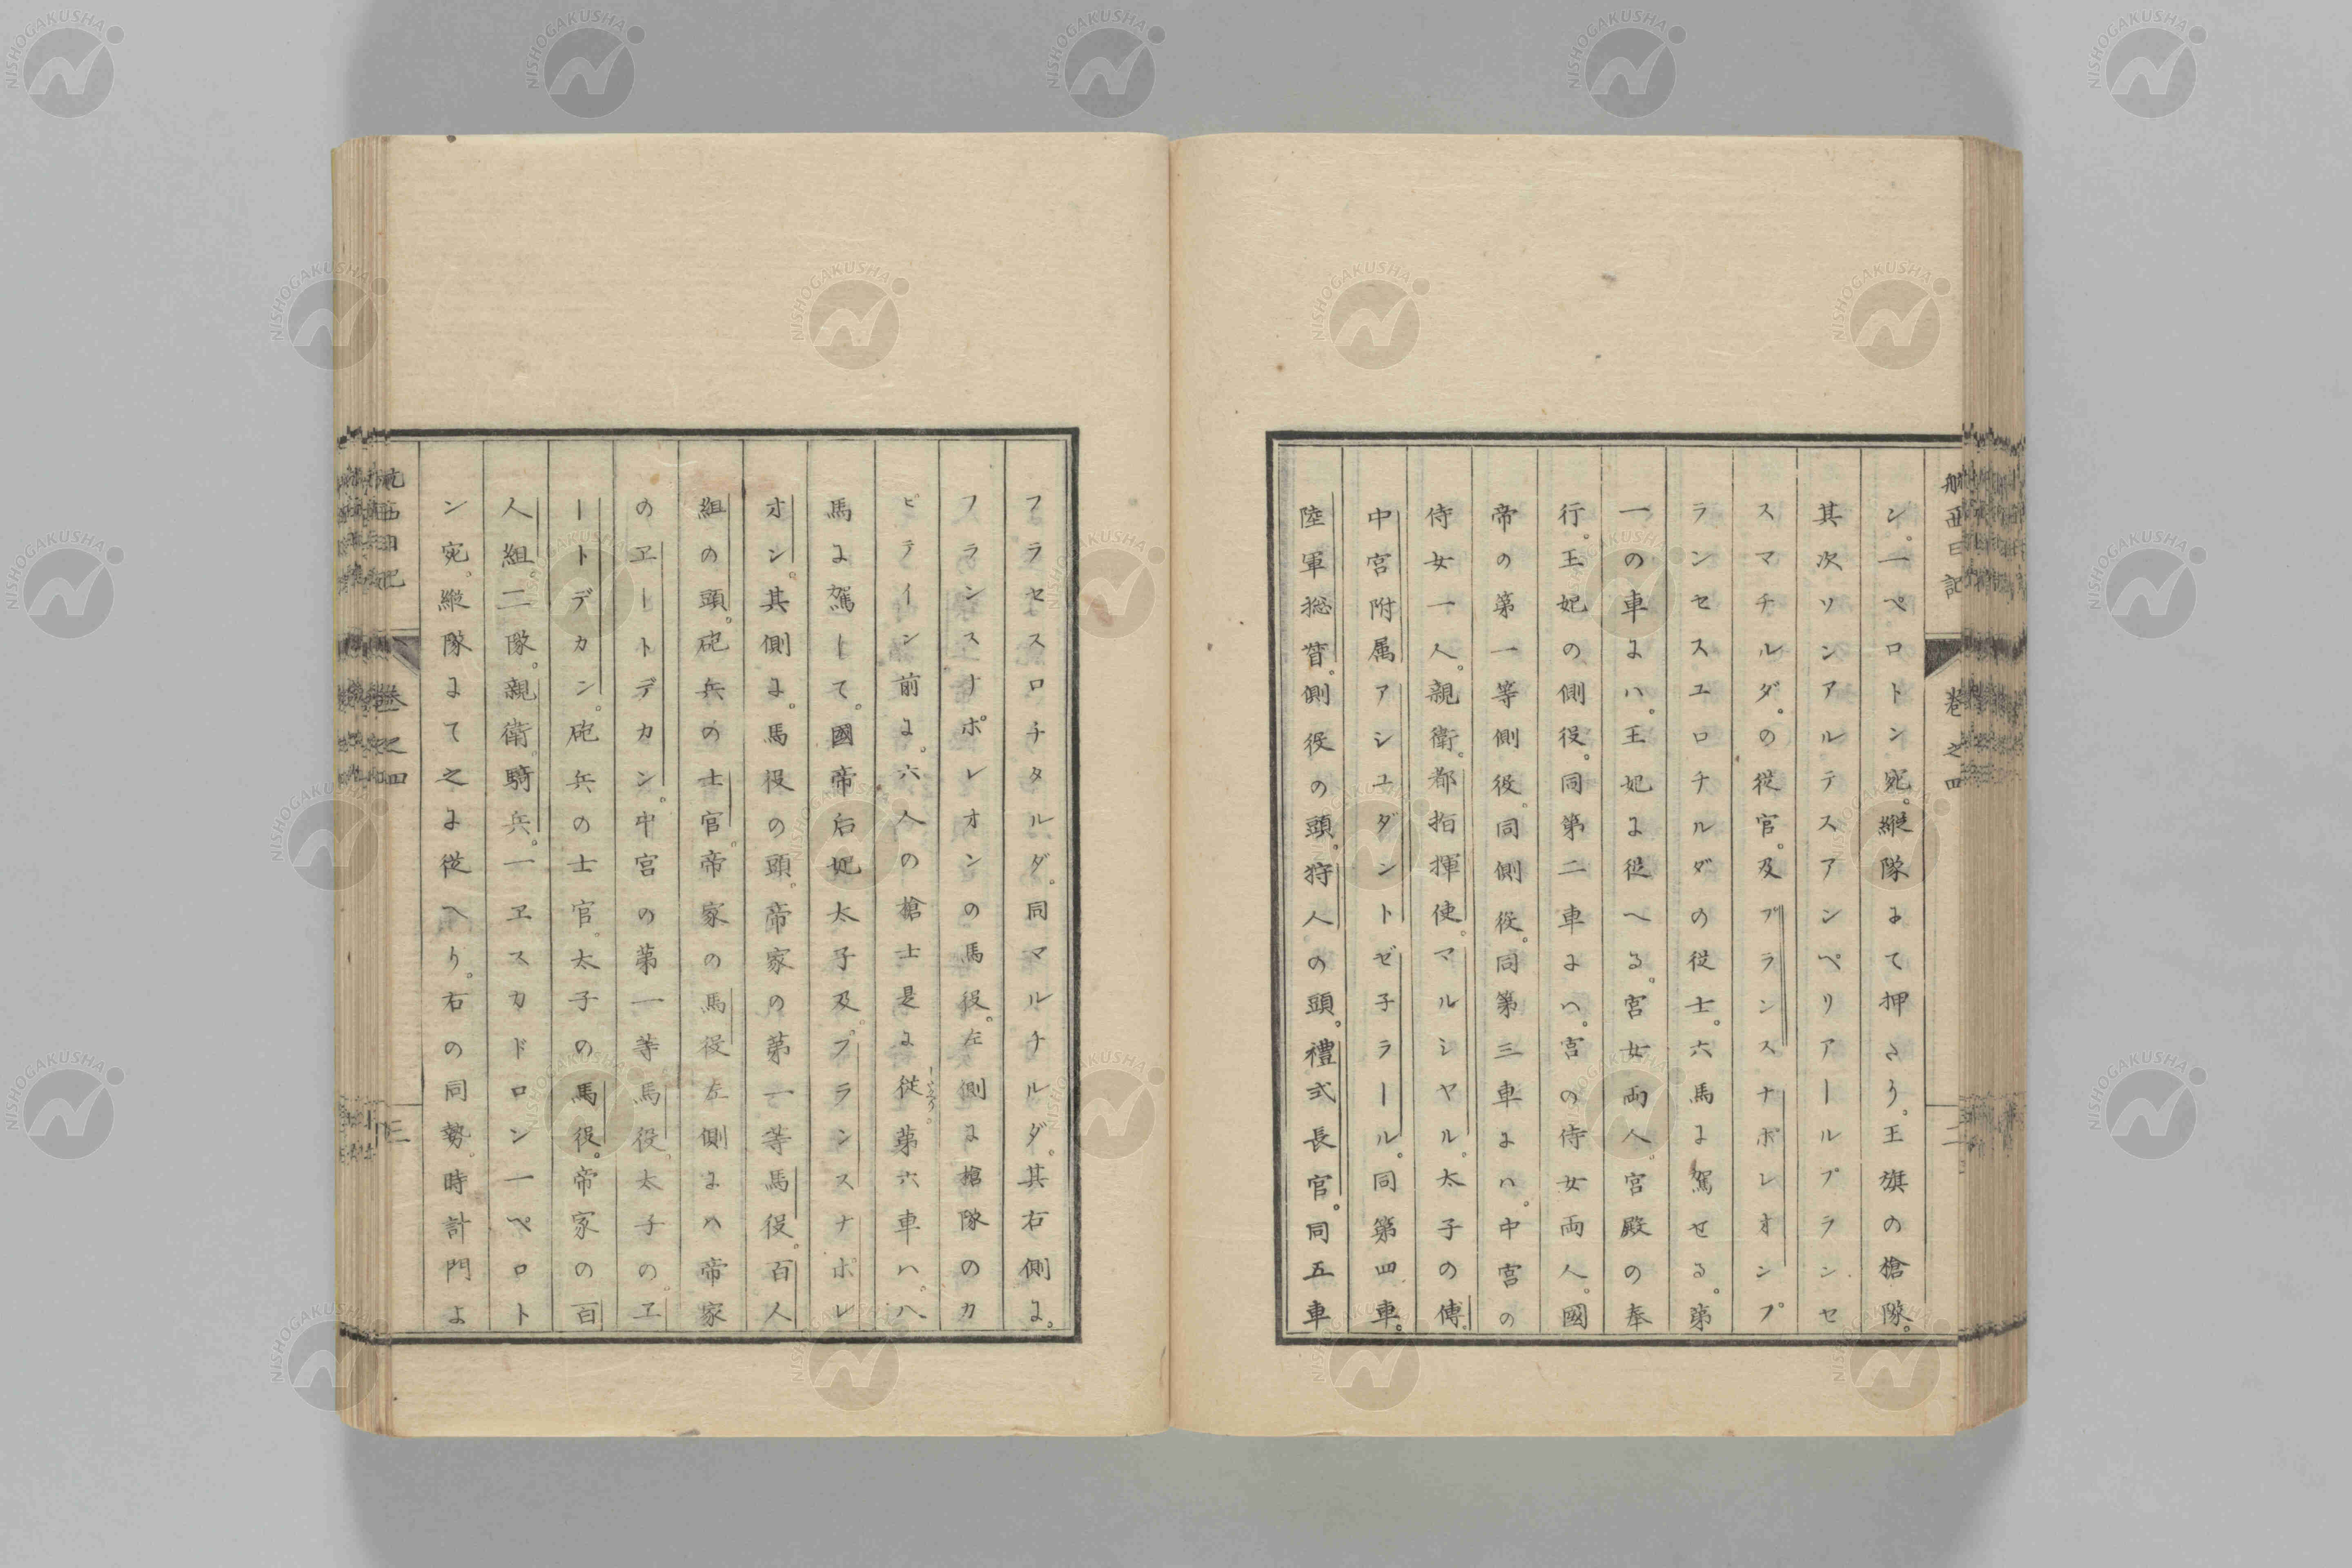 航西日記
巻之四
二
ン。一ペロトン宛。縦隊よて押さり。王旗の槍隊。
其次ソンアルテスアンペリアールプランセ
スマチルダ。の従官。及プランスナポレオンプ
ランセスユロチルダの従士。六馬よ駕せる。第
一の車よハ。王妃よ従へる。宮女両人。宮殿の奉
行。王妃の側役。同第二車よハ。宮の侍女両人。國
帝の第一等側役。同側役。同第三車よハ。中宮の
侍女一人。親衛。都指揮使。マルシヤル。太子の傅。
中宮附属アシユダントゼ子ラール。同第四車。
陸軍総督。側役の頭。狩人の頭。禮式長官。同五車
フラセスロチタルダ。同マルチルダ。其右側よ。
フランスナポレオンの馬役。左側よ槍隊のカ
ピテイン前よ。六人の槍士是よ従。第六車ハ。八
馬よ駕して。國帝后妃太子及。プランスナポレ
オン。其側よ。馬役の頭。帝家の第一等馬役。百人
組の頭。砲兵の士官。帝家の馬役左側よハ帝家
のヱートデカン。中宮の第一等馬役。太子の。ヱ
ートデカン。砲兵の士官。太子の馬役。帝家の百
人組。二隊。親衛。騎兵。一ヱスカドロン一ペロト
ン宛。縦隊よて之よ従へり。右の同勢。時計門よ
航西日記
巻之四
三
NISHOGAKUSHA